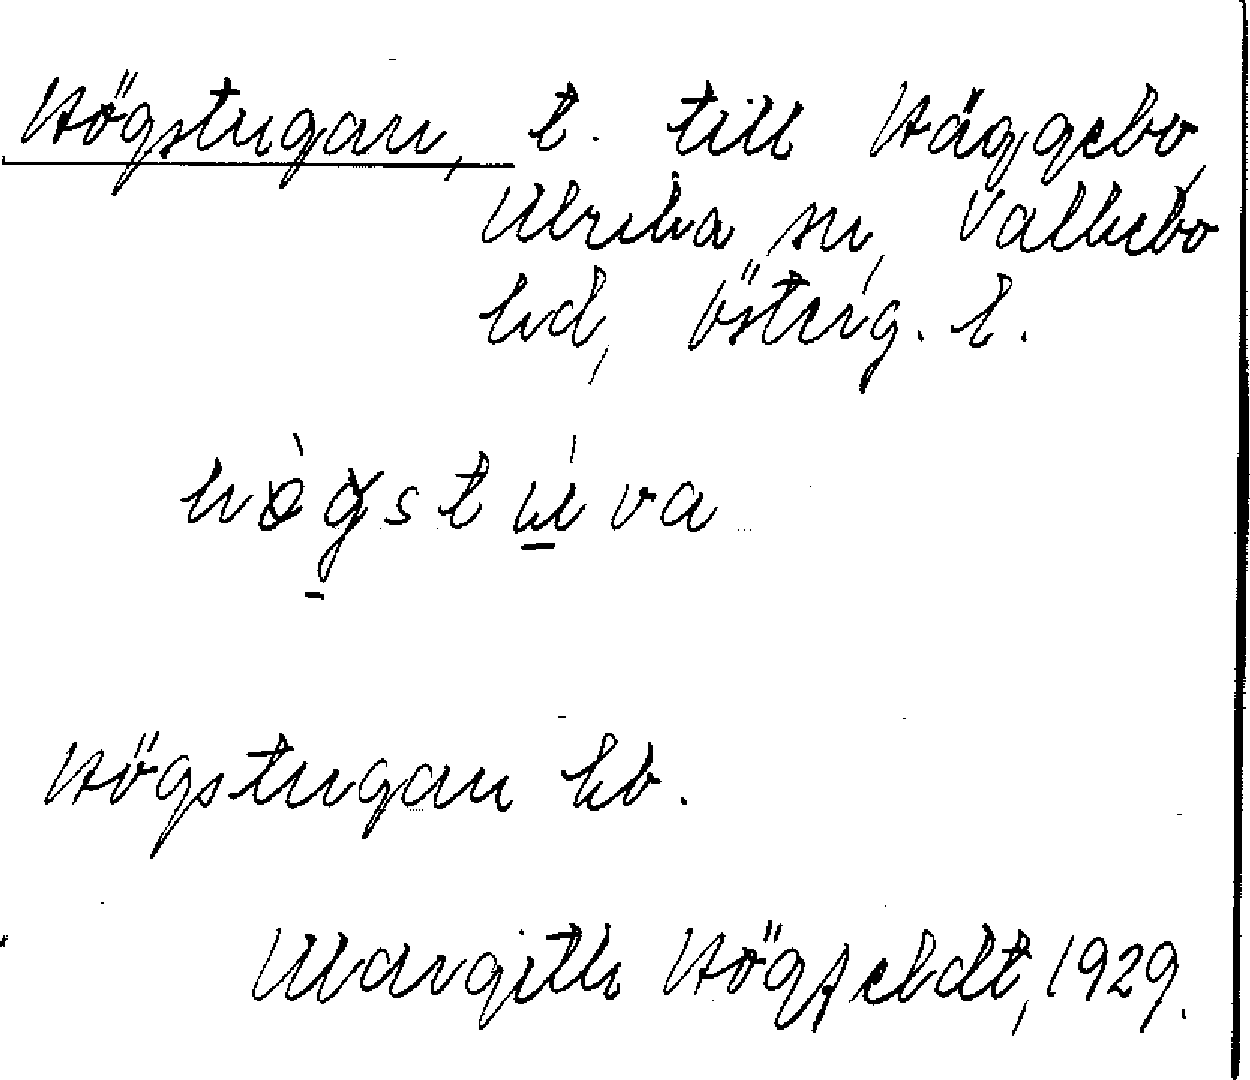 Högstugan, t. till Häggebo,
Ulrika sn, Valkebo
hd, Österg. l.
hø̀gstúva
Högstugan kb.
Margith Högfeldt, 1929.